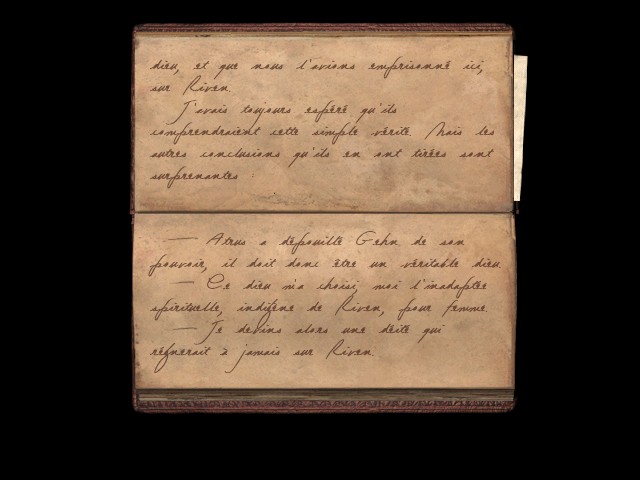 dieu, et que nous l'avions emprisonné ici,
sur Riven.
J'avais toujours espéré qu'ils
comprendraient cette simple vérité. Mais les
autres conclusions qu'ils en ont tirées sont
surprenantes :
— Atrus a dépouillé Gehn de son
pouvoir, il doit donc être un véritable dieu.
— Ce dieu m'a choisi, moi l'inadaptée
spirituelle, indigène de Riven, pour femme.
— Je devins alors une déité qui
régnerait à jamais sur Riven.